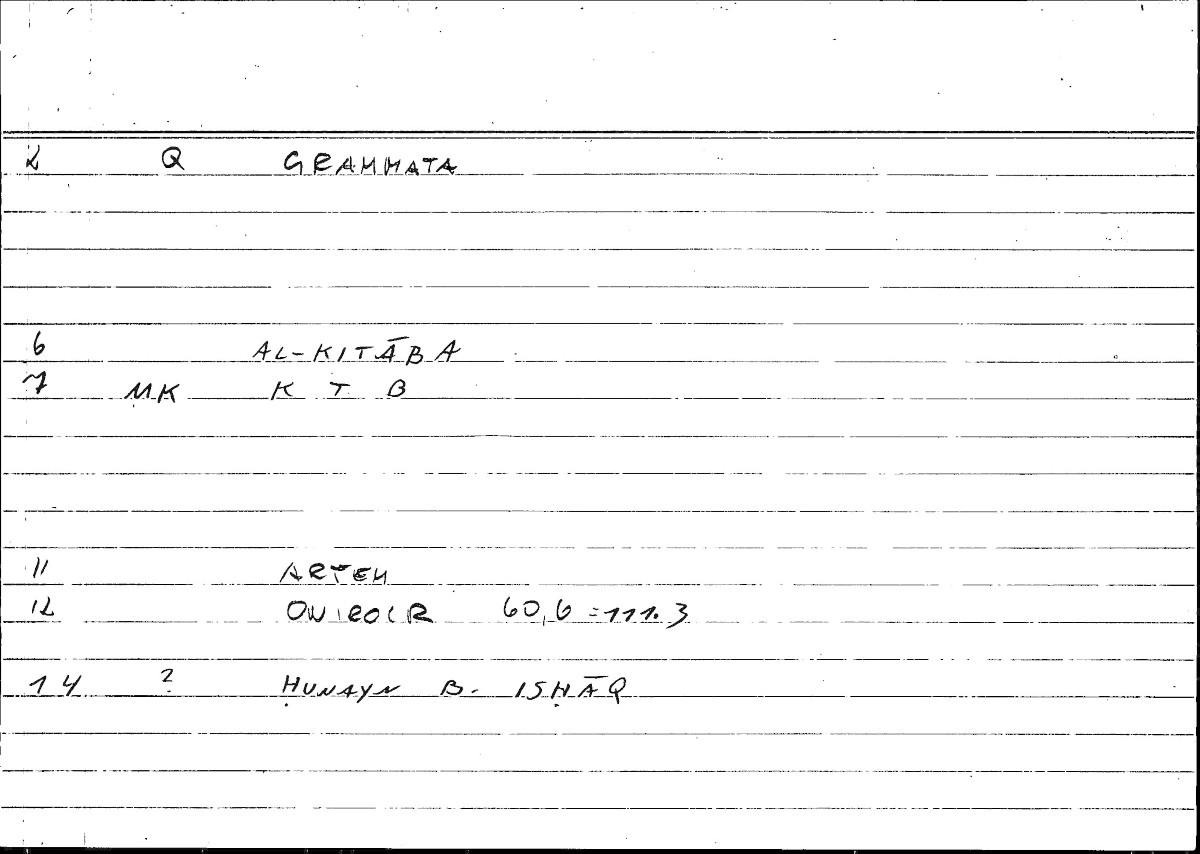 2 Q GRAMMATA
6 AL-KITĀBA
7 MK K T B
11 ARTEM
12 ONIROCR 60,6 = 111.3
14 2 ḤUNAYN B. ISḤĀQ